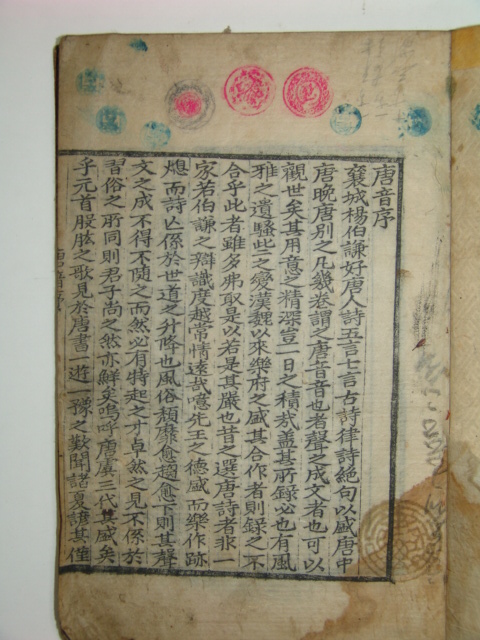 唐音序
襄城楊伯謙好唐人詩五言七言古詩律詩絶句以盛唐中
唐晚唐別之凡幾卷謂之唐音音也者聲之成文者也可以
觀世矣其用意之精深豈一日之積哉盖其所録必也有風
雅之遺騷些之變漢魏以來樂府之盛其合作者則録之不
合乎此者雖多弗取是以若是其嚴也昔之選唐詩者非一
家若伯謙之辯識度越常情遠哉噫先王之德盛而樂作跡
熄而詩亡係於世道之升降也風俗頹靡愈趨愈下則其聲
文之成不得不隨之而然必有特起之才卓然之見不係於
習俗之所同則君子尚之然亦鮮矣嗚呼唐虞三代其盛矣
乎元首股肱之歌見於唐書一遊一豫之歎聞諸夏諺其僅
唐音序